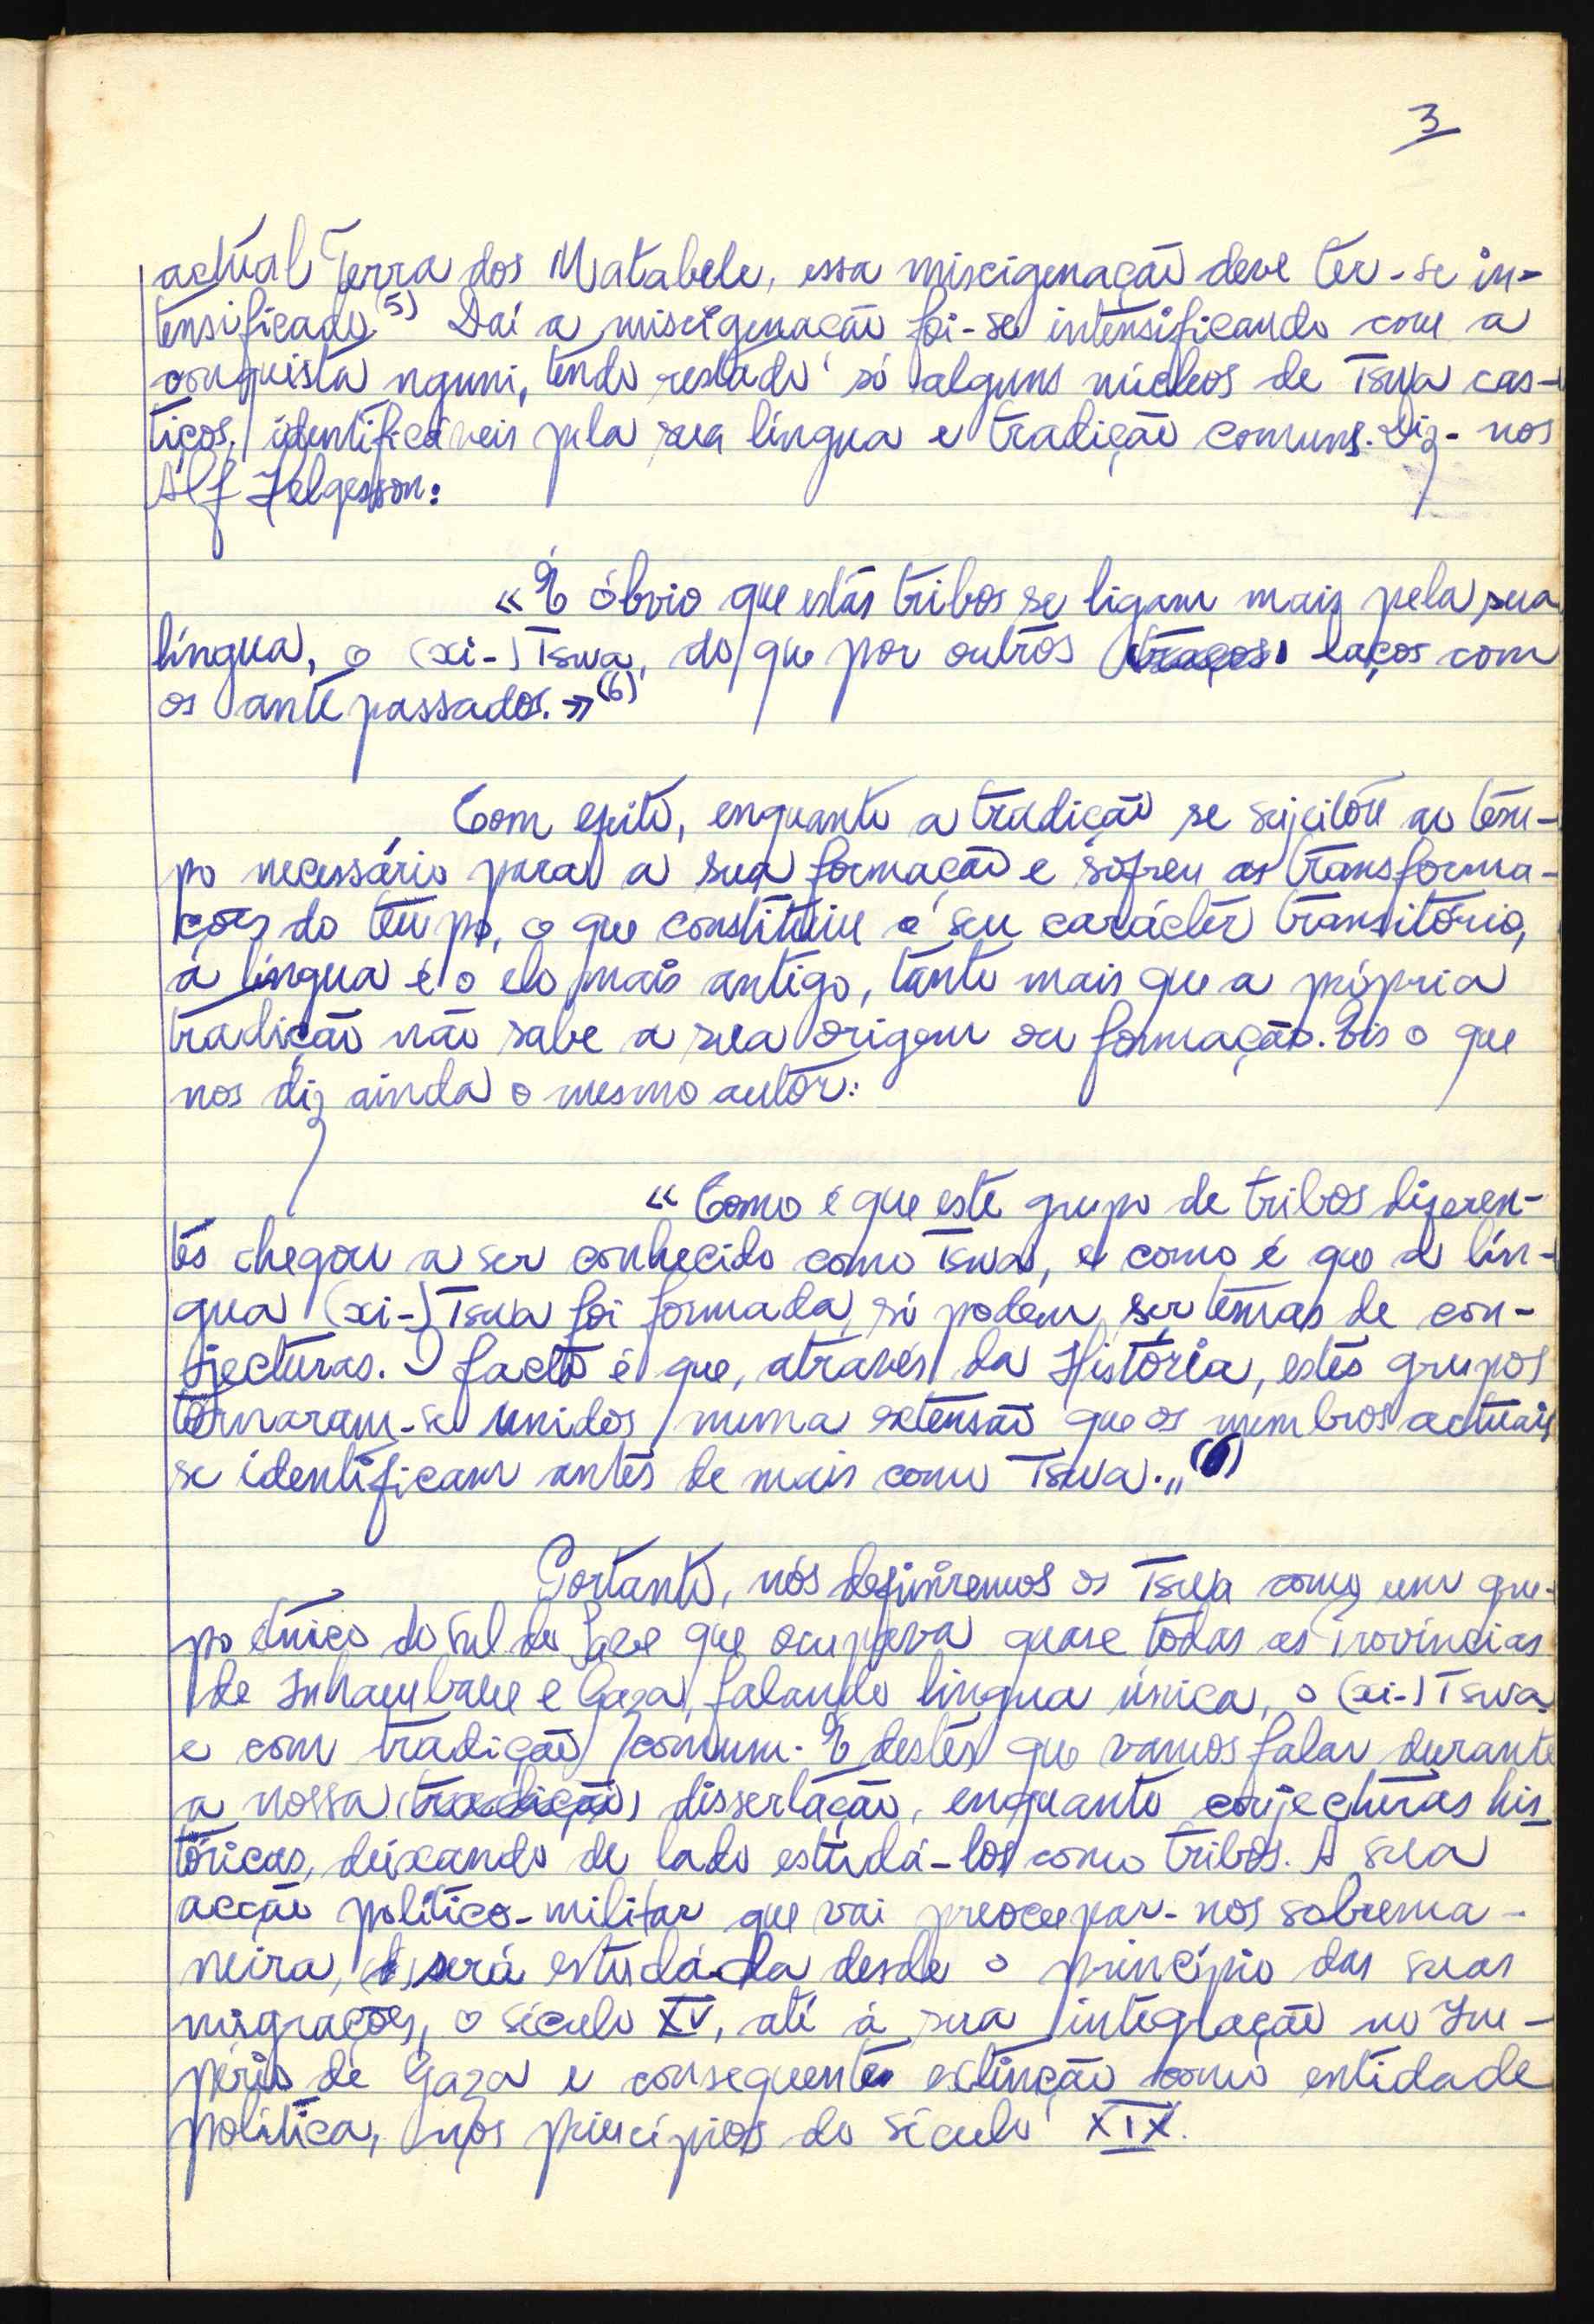 3
actual Terra dos Matabele, essa miscigenação deve ter-se in-
tensificado.5) Daí a miscigenação foi-se intensificando com a
conquista nguni, tendo restado só alguns núcleos de Tswa cas-
tiços, identificáveis pela sua língua e tradição comuns. Diz-nos
Alf Helgesson:
«É óbvio que estas tribos se ligam mais pela sua
língua, o (xi-) Tswa, do que por outros (traços) laços com
os antepassados.»(6)
Com efeito, enquanto a tradição se sujeitou ao tem-
po necessário para a sua formação e sofreu as transforma-
ções do tempo, o que constituiu o seu carácter transitório,
a língua é o elo mais antigo, tanto mais que a própria
tradição não sabe a sua origem ou formação. Eis o que
nos diz ainda o mesmo autor:
«Como é que este grupo de tribos diferen-
tes chegou a ser conhecido como Tswa, e como é que a lín-
gua (xi-) Tswa foi formada, só podem ser temas de con-
jecturas. O facto é que, através da História, estes grupos
tornaram-se unidos numa extensão que os membros actuais
se identificam antes de mais como Tswa.„(6)
Portanto, nós definiremos os Tswa como um gru-
po étnico do Sul do Save que ocupava quase todas as Províncias
de Inhambane e Gaza, falando língua única, o (xi-) Tswa
e com tradição comum. É destes que vamos falar durante
a nossa (tradição) dissertação, enquanto conjecturas his
tóricas, deixando de lado estudá-los como tribos. A sua
acção político-militar que vai preocupar-nos sobrema-
neira, será estudada desde o princípio das suas
migrações, o século XV, até à sua integração no Im-
pério de Gaza e consequente extinção como entidade
política, nos princípios do século XIX.